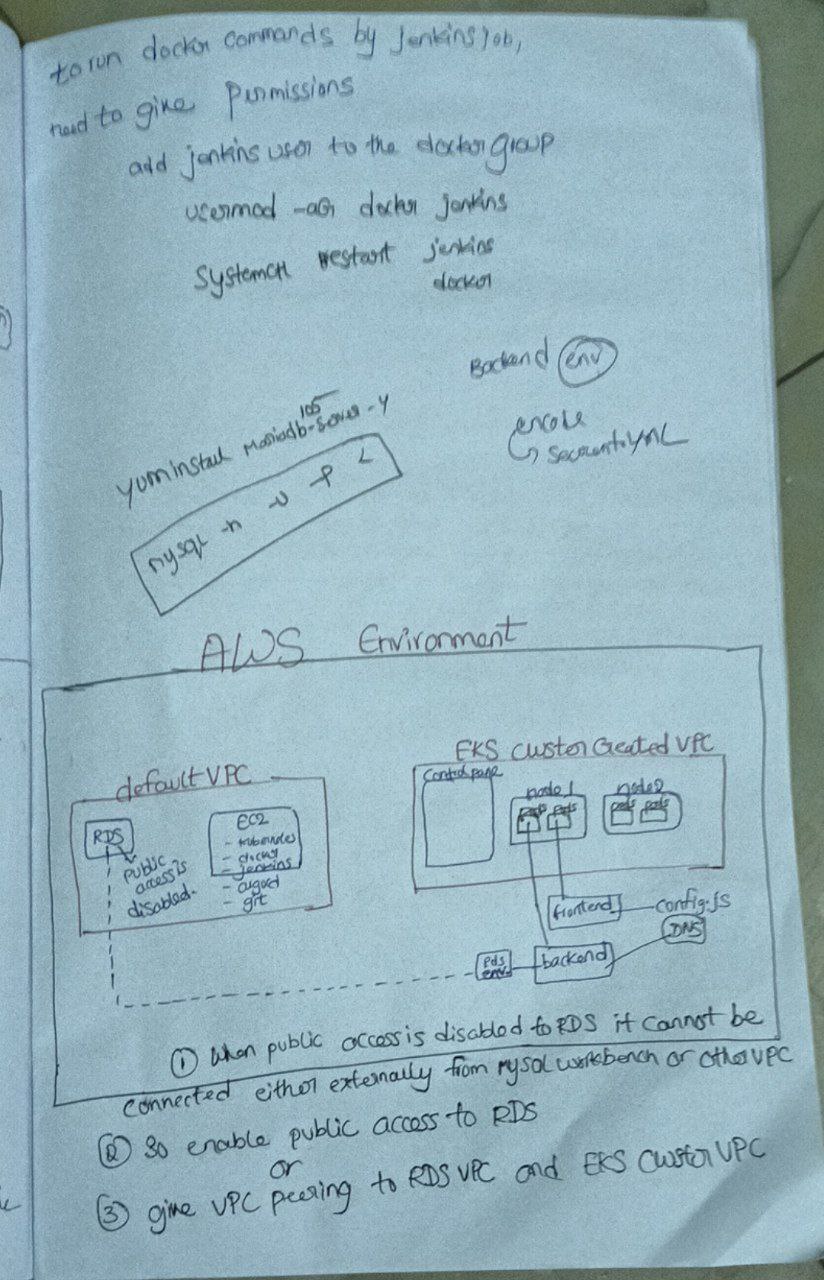 to run docker commands by jenkins job,
need to give Permissions
add jenkins user to the docker group
usermod -aG docker jenkins
Systemctl restart jenkins
docker
Backend env
encode
yum install Mariadb 105-Server -y
mysql -h -u -p <
AWS Environment
default VPC
RDS
public
access is
disabled.
EC2
- kubernetes
- docker
- jenkins
- argocd
- git
EKS cluster Created VPC
Control pane
node1
pods pods
node2
pods pods
frontend
config.js
DNS
backend
env
① When public access is disabled to RDS it cannot be
connected either externally from mysql workbench or other VPC
② So enable public access to RDS
or
③ give VPC peering to RDS VPC and EKS cluster VPC